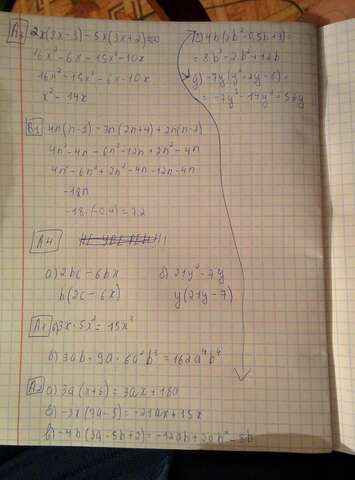 A3 2x(8x-3)-5x(3x+2)=
16x²-6x-15x²-10x
16x²-15x²-6x-10x
x²-14x
B1 4n(n-1)-3n(2n+4)+2n(n-2)
4n²-4n-6n²-12n+2n²-4n
4n²-6n²+2n²-4n-12n-4n
-18n
-18·(-0,4)=7,2
A4
а) 2bc-6bx б) 21y²-7y
b(2c-6x) y(21y-7)
A1 а) 3x·5x²=15x³
б) 3ab·9a·6a²b³=162a⁴b⁴
A2 а) 3a(x+6)=3ax+180
б) -3x(7a-5)=-21ax+15x
в) -4b(3a-5b+2)=-12ab+20b²-8b
г) 4b(2b²-0,5b+3)=
=8b³-2b²+12b
д) -7y(y²+2y-8)=
=-7y³-14y²+56y